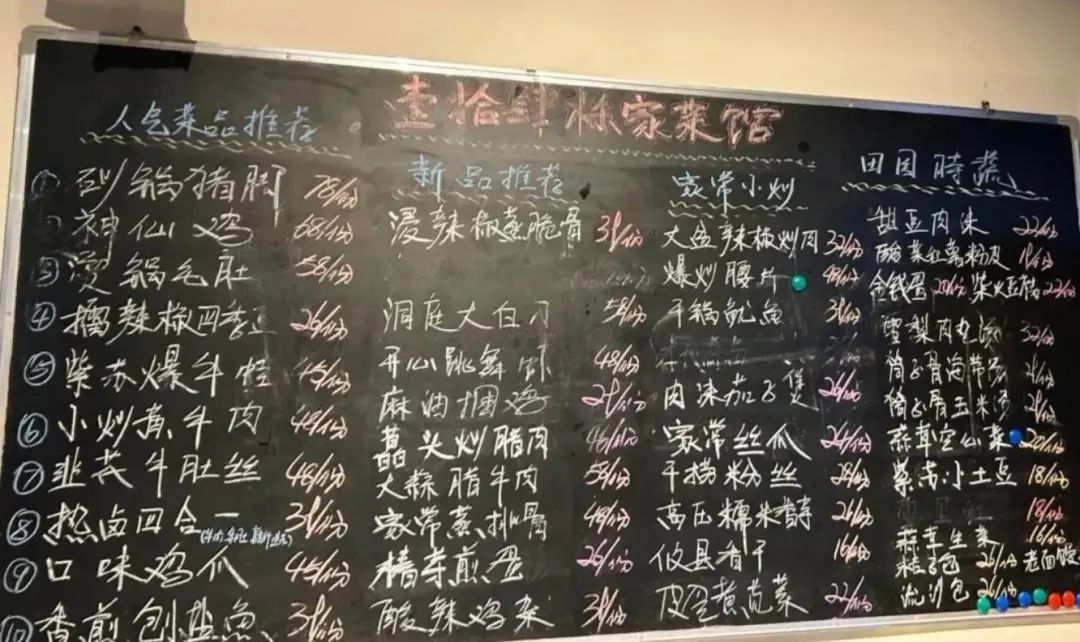 壹拾肆栋家菜馆
人气菜品推荐
① 砂锅猪脚 78/份
② 神仙鸡 68/份
③ 烫锅毛肚 58/份
④ 擂辣椒四季豆 26/份
⑤ 紫苏爆牛蛙 45/份
⑥ 小炒黄牛肉 48/份
⑦ 韭花牛肚丝 48/份
⑧ 热卤四合一 38/份
⑨ 口味鸡爪 45/份
⑩ 香煎刨盐鱼 38/份
新品推荐
浸辣椒蒸脆骨 38/份
洞庭大白刁 58/份
开心跳舞 48/份
麻油捆鸡 28/份
藠头炒腊肉 46/份
大蒜腊牛肉 58/份
家常蒸排骨 48/份
精寺煎蛋 26/份
酸辣鸡杂 38/份
家常小炒
大盆辣椒炒肉 32/份
爆炒腰片 48/份
干锅鱿鱼 38/份
肉沫茄子煲 26/份
家常丝瓜 24/份
干捞粉丝 28/份
高压糯米 26/份
攸县香干 16/份
皮蛋煮苋菜 22/份
田园時蔬
甜豆肉沫 22/份
酸菜红薯粉皮 18/份
金钱蛋 20/份 柴火豆腐 22/份
雪梨肉丸汤 32/份
筒子骨海带汤
筒子骨玉米汤 28/份
蒜蓉空心菜 20/份
紫苏小土豆 18/份
18/份
蒜蓉生菜 16/份
粽子包 26/份 老面馒
流沙包 26/份